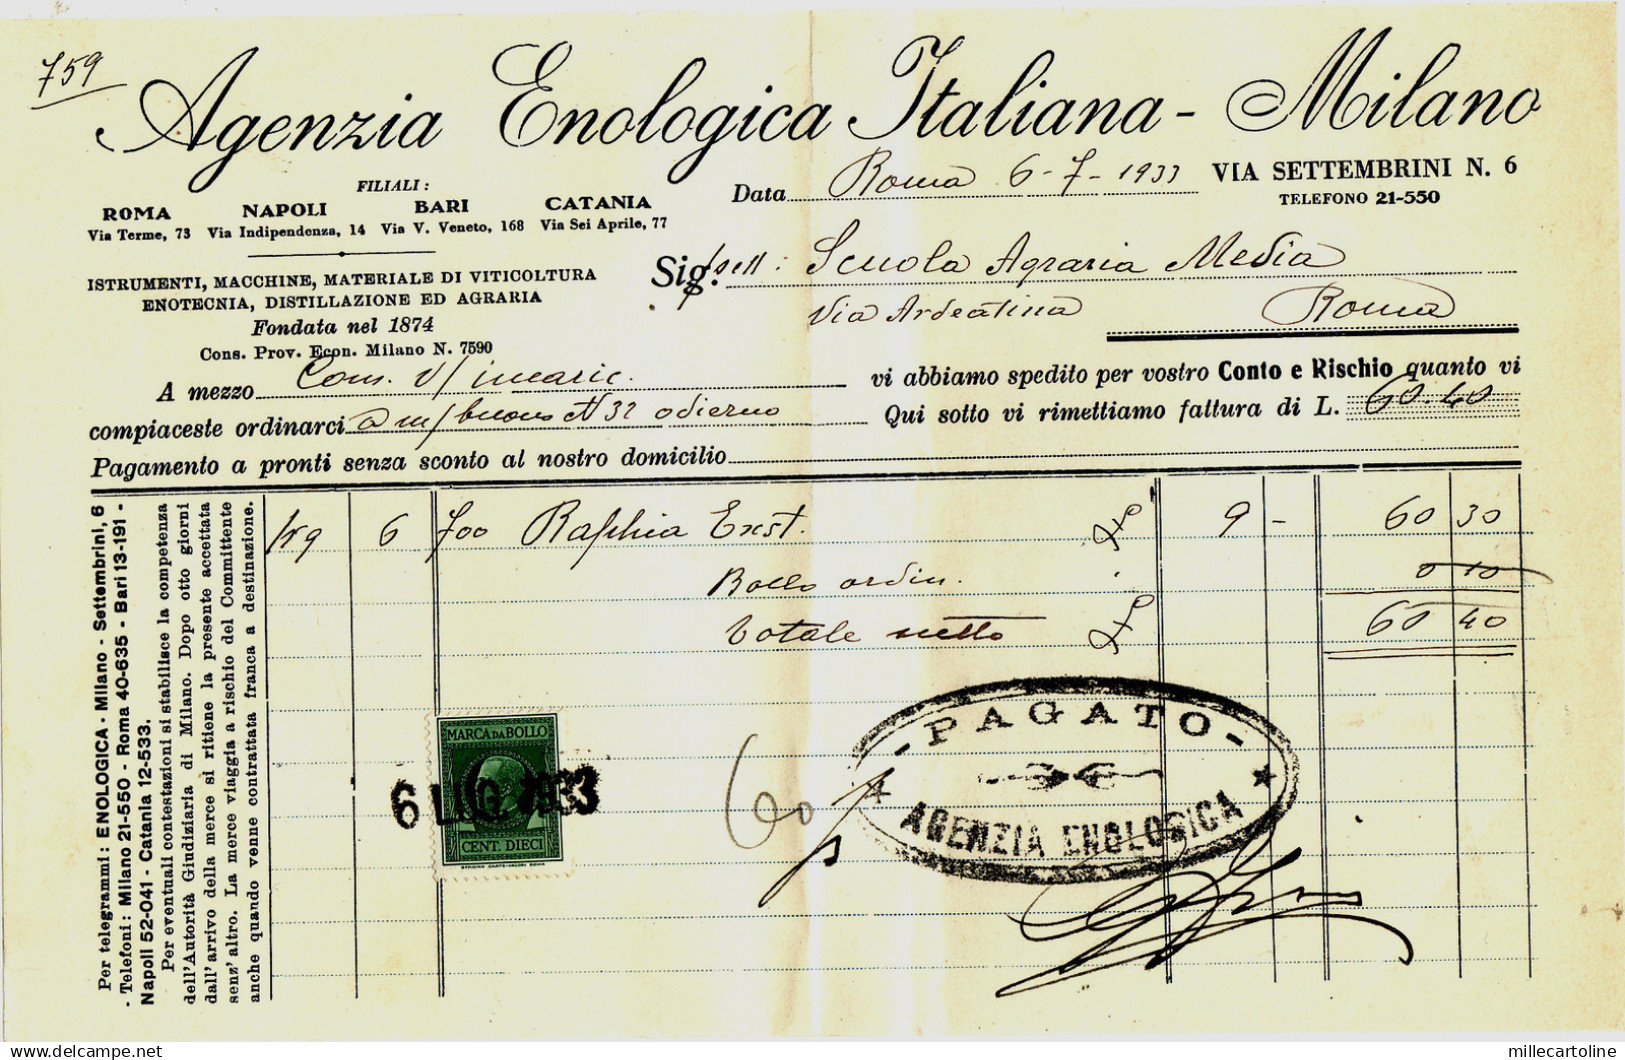 759
Agenzia Enologica Italiana - Milano
FILIALI:
ROMA NAPOLI BARI CATANIA
Via Terme, 73 Via Indipendenza, 14 Via V. Veneto, 168 Via Sei Aprile, 77
Data Roma 6-7-1933 VIA SETTEMBRINI N. 6
TELEFONO 21-550
ISTRUMENTI, MACCHINE, MATERIALE DI VITICOLTURA
ENOTECNIA, DISTILLAZIONE ED AGRARIA
Fondata nel 1874
Cons. Prov. Econ. Milano N. 7590
Sig. Scuola Agraria Media
Via Ardeatina Roma
A mezzo Com.
vi abbiamo spedito per vostro Conto e Rischio quanto vi
compiaceste ordinarci a m/ buono N 32 odierno
Qui sotto vi rimettiamo fattura di L. 60.40
Pagamento a pronti senza sconto al nostro domicilio
Kg 6 700 Raphia £ 9 - 60 30
Bollo ordin. 0 10
Totale netto £ 60 40
Per telegrammi: ENOLOGICA - Milano - Settembrini, 6
- Telefoni: Milano 21-550 - Roma 40-635 - Bari 13-191 -
Napoli 52-041 - Catania 12-533.
Per eventuali contestazioni si stabilisce la competenza
dell'Autorità Giudiziaria di Milano. Dopo otto giorni
dall'arrivo della merce si ritiene la presente accettata
senz'altro. La merce viaggia a rischio del Committente
anche quando venne contrattata franca a destinazione.
MARCA DA BOLLO
6 LUG. 1933
CENT. DIECI
- PAGATO -
AGENZIA ENOLOGICA
delcampe.net
millecartoline